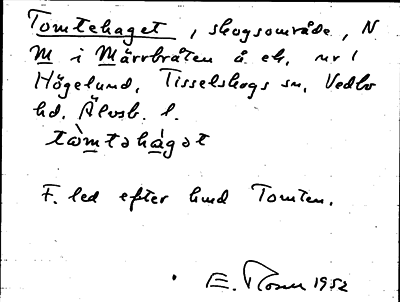 Tomtehaget, skogsområde, N
M i Märrbråten å ek. nr 1
Högelund, Tisselskogs sn, Vedbo
hd. Älvsb. l.
tòmtəhágət
F. led efter hmd Tomten.
E. Rosen 1952